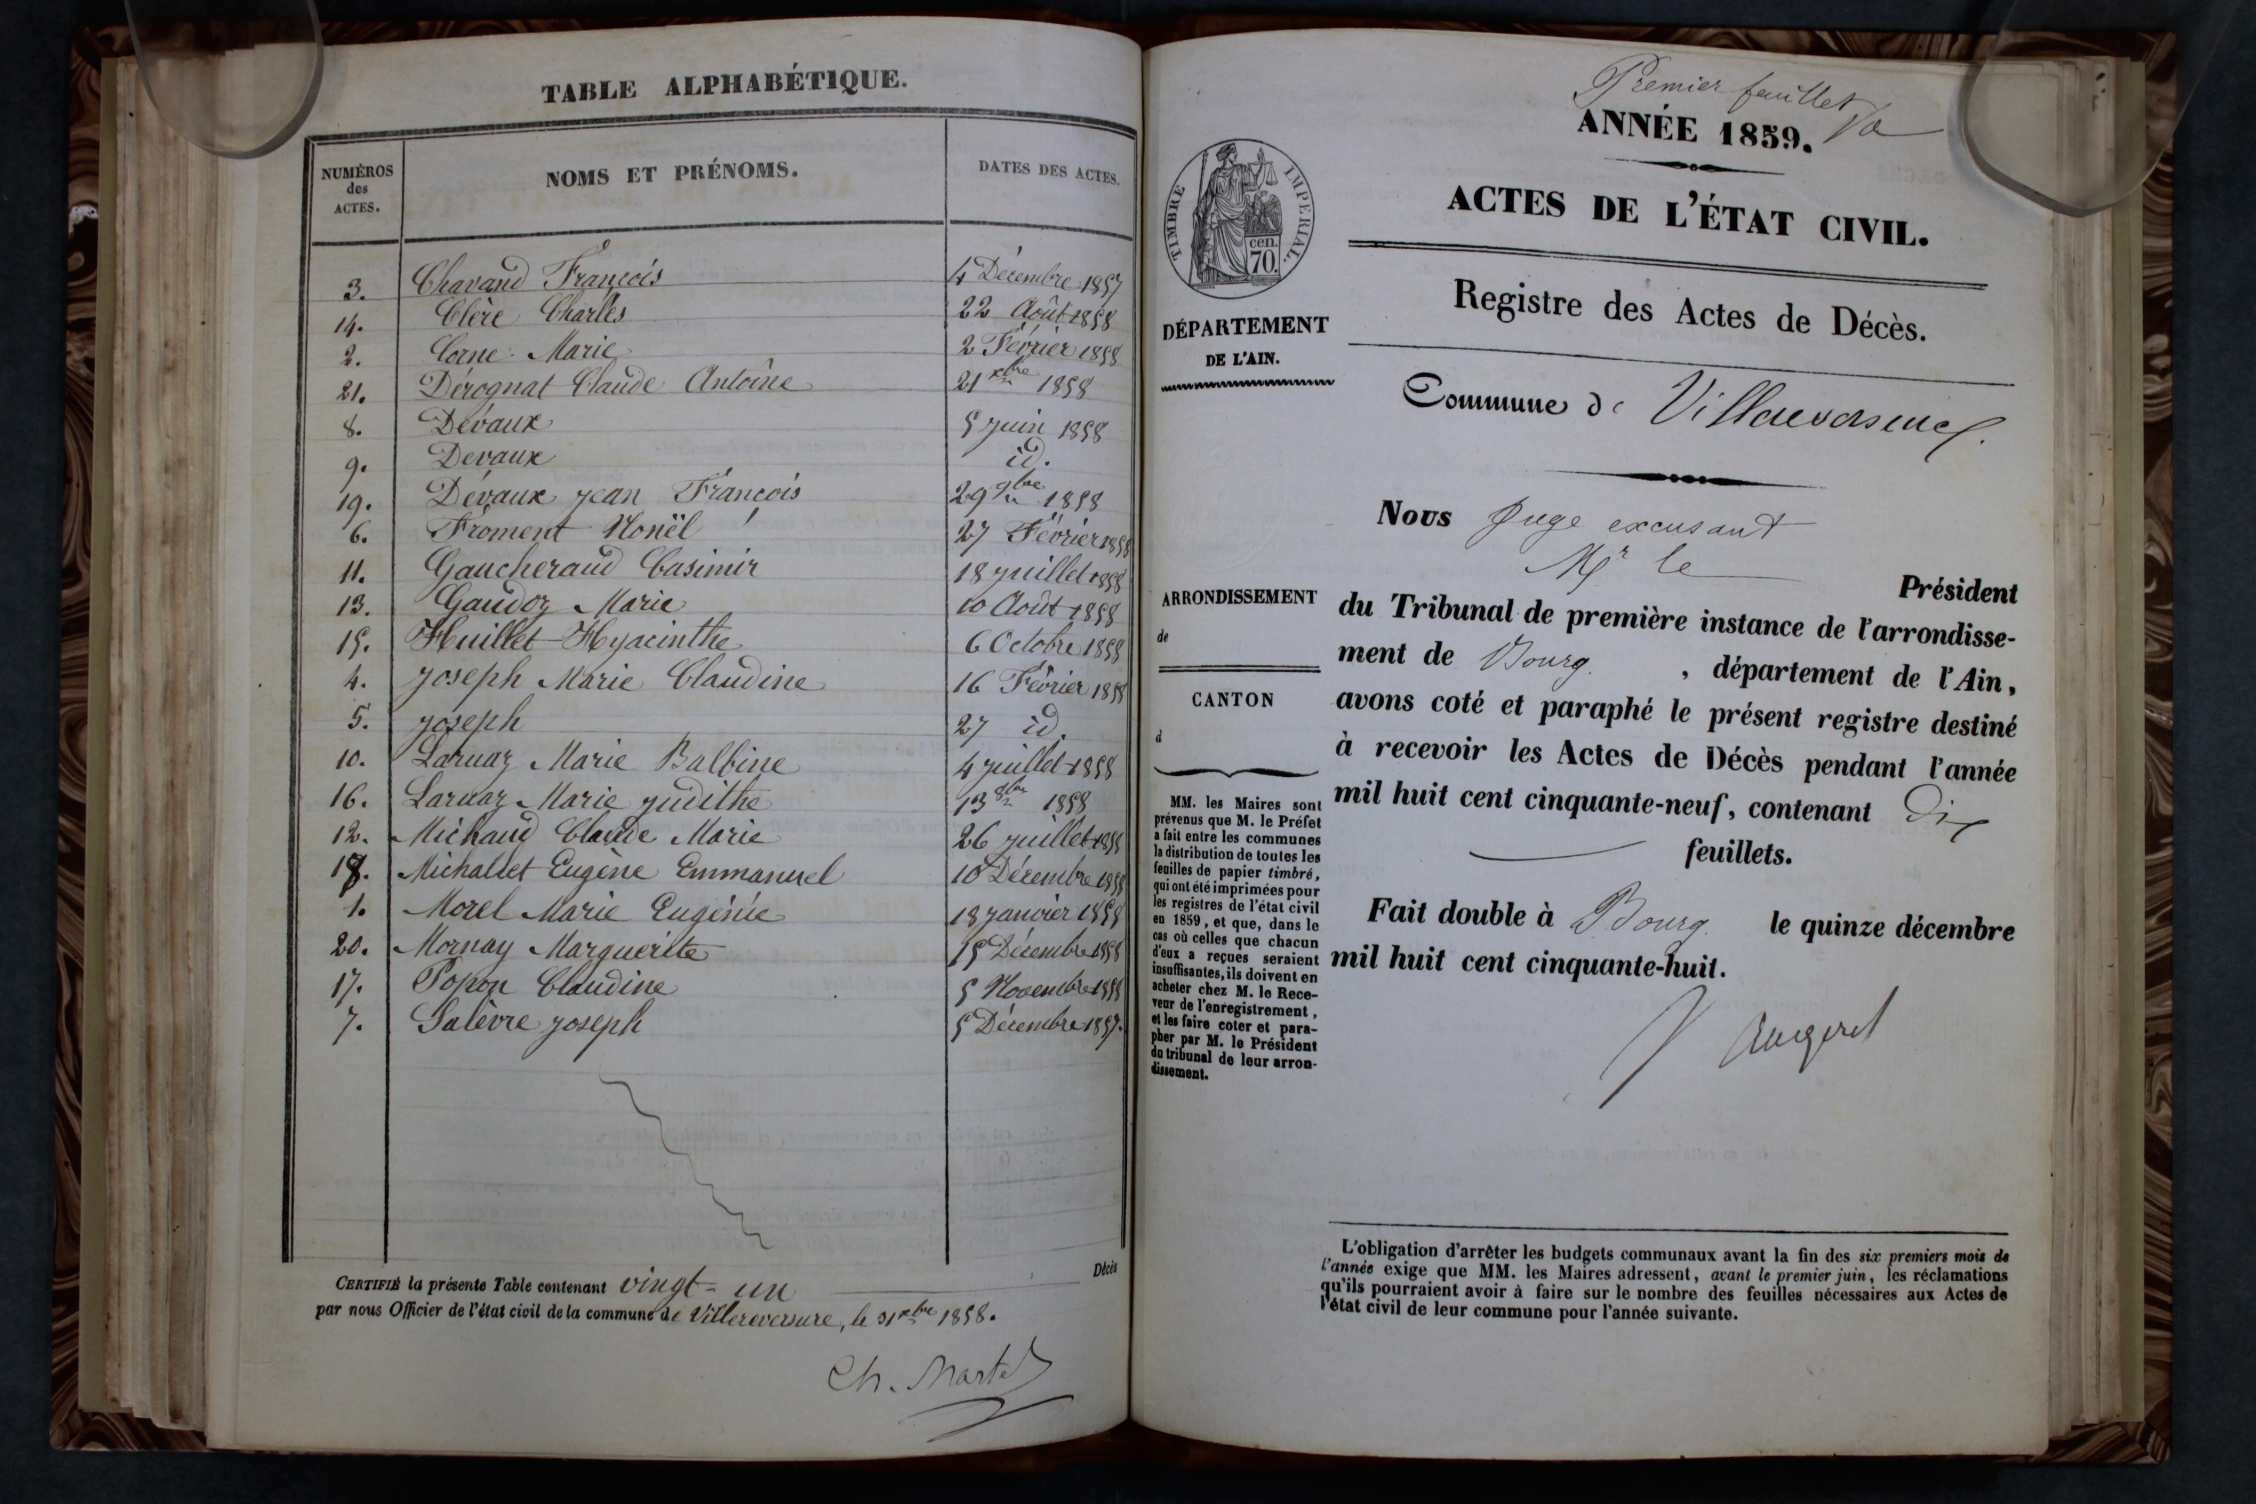 TABLE ALPHABÉTIQUE.
NUMÉROS des ACTES. NOMS ET PRÉNOMS. DATES DES ACTES.
3. Chavand François 4 Décembre 1857
14. Clère Charles 22 Août 1858
2. Corne Marie 2 Février 1858
21. Dérognat Claude Antoine 21 xbre 1858
8. Dévaux 5 juin 1858
9. Devaux id.
19. Dévaux jean François 29 9bre 1858
6. Froment Nonël 27 Février 1858
11. Gaucheraud Casimir 18 juillet 1858
13. Gaudoz Marie 10 Août 1858
15. Huillet Hyacinthe 6 Octobre 1858
4. joseph Marie Claudine 16 Février 1858
5. joseph 27 id.
10. Laruaz Marie Balbine 4 juillet 1858
16. Laruaz Marie judithe 13 8bre 1858
12. Michaud Claude Marie 26 juillet 1858
18. Michallet Eugène Emmanuel 10 Décembre 1858
1. Morel Marie Eugénie 18 janvier 1858
20. Mornay Marguerite 15 Décembre 1858
17. Popon Claudine 5 Novembre 1858
7. Salèvre joseph 5 Décembre 1857.
CERTIFIÉ la présente Table contenant vingt-un Décès
par nous Officier de l'état civil de la commune de Villereversure, le 31 xbre 1858.
Ch. Martel
Premier feuillet
ANNÉE 1859.
TIMBRE IMPÉRIAL.
cen.
70.
ACTES DE L'ÉTAT CIVIL.
Registre des Actes de Décès.
DÉPARTEMENT
DE L'AIN.
Commune de Villereversure.
Nous Juge excusant
Mr le Président
du Tribunal de première instance de l'arrondisse-
ment de Bourg, département de l'Ain,
avons coté et paraphé le présent registre destiné
à recevoir les Actes de Décès pendant l'année
mil huit cent cinquante-neuf, contenant Dix
feuillets.
Fait double à Bourg le quinze décembre
mil huit cent cinquante-huit.
ARRONDISSEMENT
de
CANTON
d
MM. les Maires sont
prévenus que M. le Préfet
a fait entre les communes
la distribution de toutes les
feuilles de papier timbré,
qui ont été imprimées pour
les registres de l'état civil
en 1859, et que, dans le
cas où celles que chacun
d'eux a reçues seraient
insuffisantes, ils doivent en
acheter chez M. le Rece-
veur de l'enregistrement,
et les faire coter et para-
pher par M. le Président
du tribunal de leur arron-
dissement.
L'obligation d'arrêter les budgets communaux avant la fin des six premiers mois de
l'année exige que MM. les Maires adressent, avant le premier juin, les réclamations
qu'ils pourraient avoir à faire sur le nombre des feuilles nécessaires aux Actes de
l'état civil de leur commune pour l'année suivante.